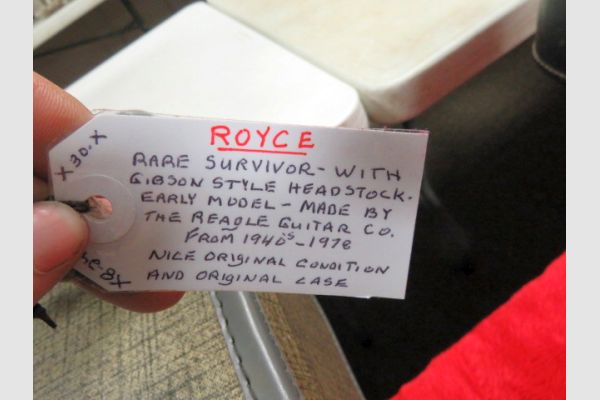 ROYCE
RARE SURVIVOR - WITH
GIBSON STYLE HEADSTOCK.
EARLY MODEL - MADE BY
THE REAGLE GUITAR CO.
FROM 1940s - 1978
NICE ORIGINAL CONDITION
AND ORIGINAL CASE
X30.X